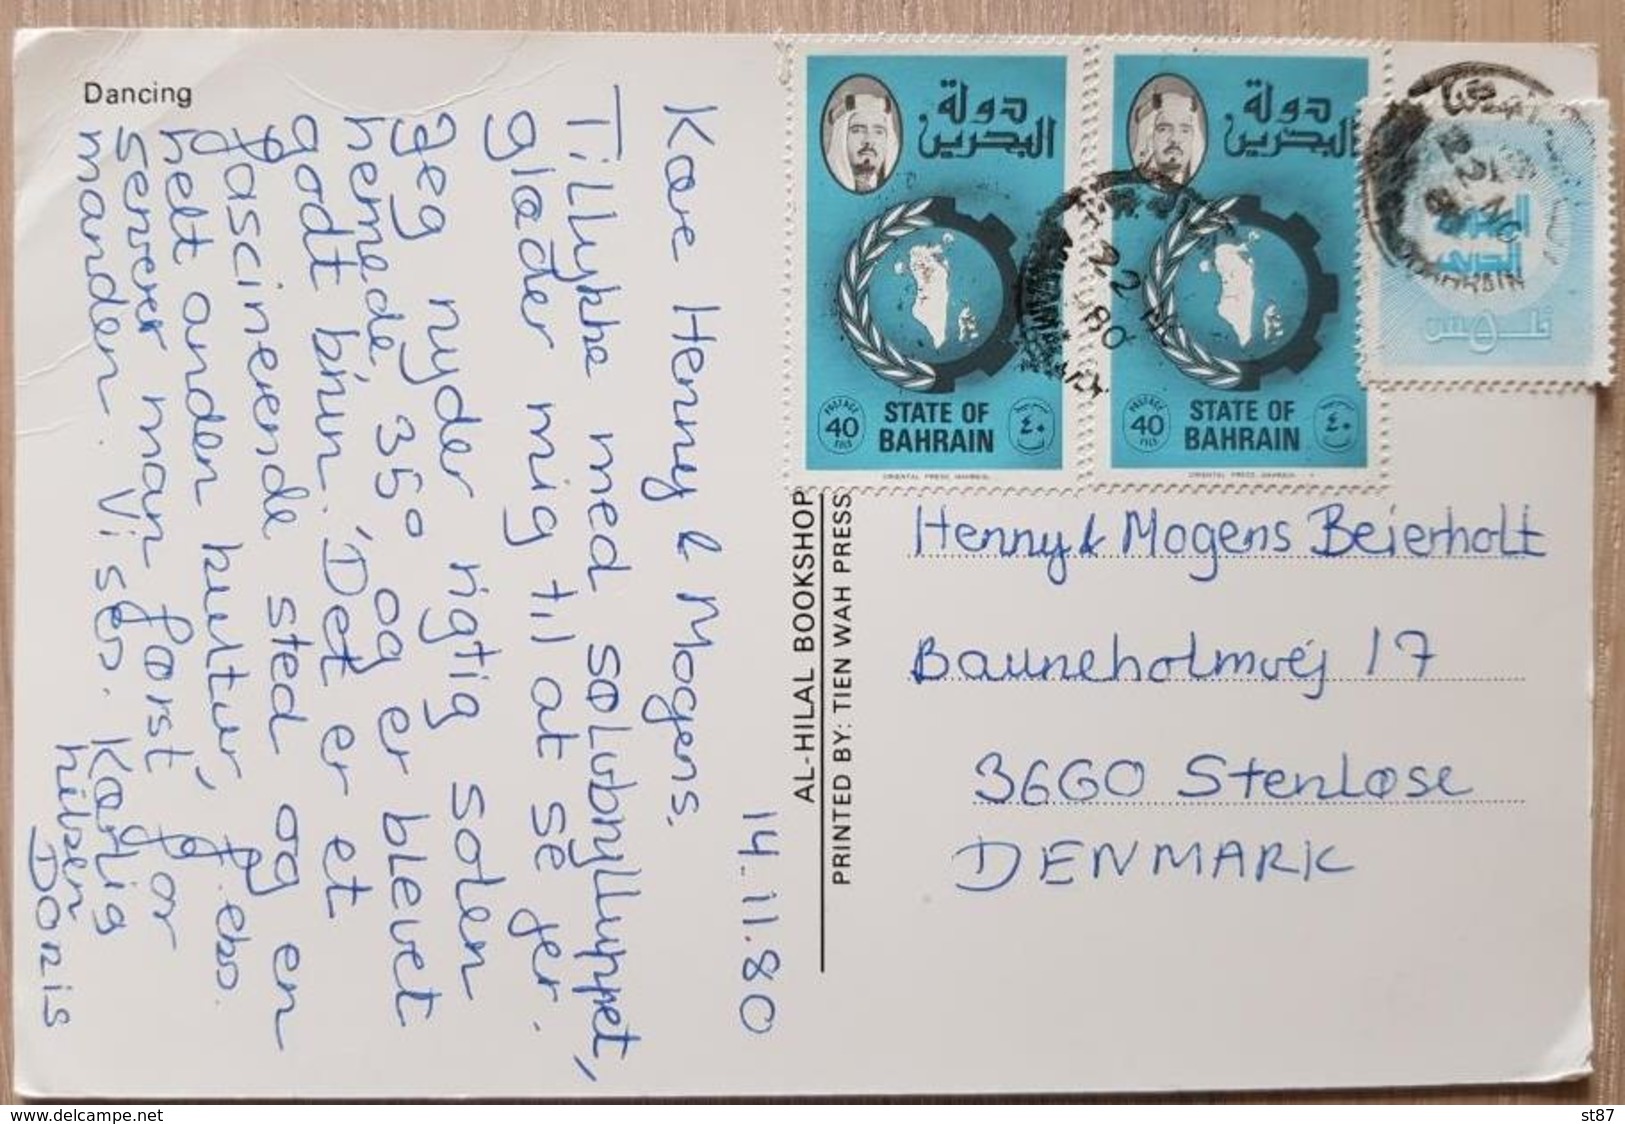 Dancing
14.11.80
Kære Henny & Mogens.
Tillykke med sølvbrylluppet,
glæder mig til at se jer.
Jeg nyder rigtig solen
hernede, 35° og er blevet
godt brun. Det er et
fascinerende sted og en
helt anden kultur, f.eks.
serverer man først for
manden. Vi ses. Kærlig
hilsen
Dorris
AL-HILAL BOOKSHOP
PRINTED BY: TIEN WAH PRESS
دولة
البحرين
POSTAGE
40
FILS
STATE OF
BAHRAIN
٤٠
ORIENTAL PRESS, BAHRAIN.
دولة
البحرين
POSTAGE
40
FILS
STATE OF
BAHRAIN
٤٠
ORIENTAL PRESS, BAHRAIN.
22
1980
BAHRAIN
فلس
Henny & Mogens Beierholt
Bauneholmvej 17
3660 Stenløse
DENMARK
www.delcampe.net
st87